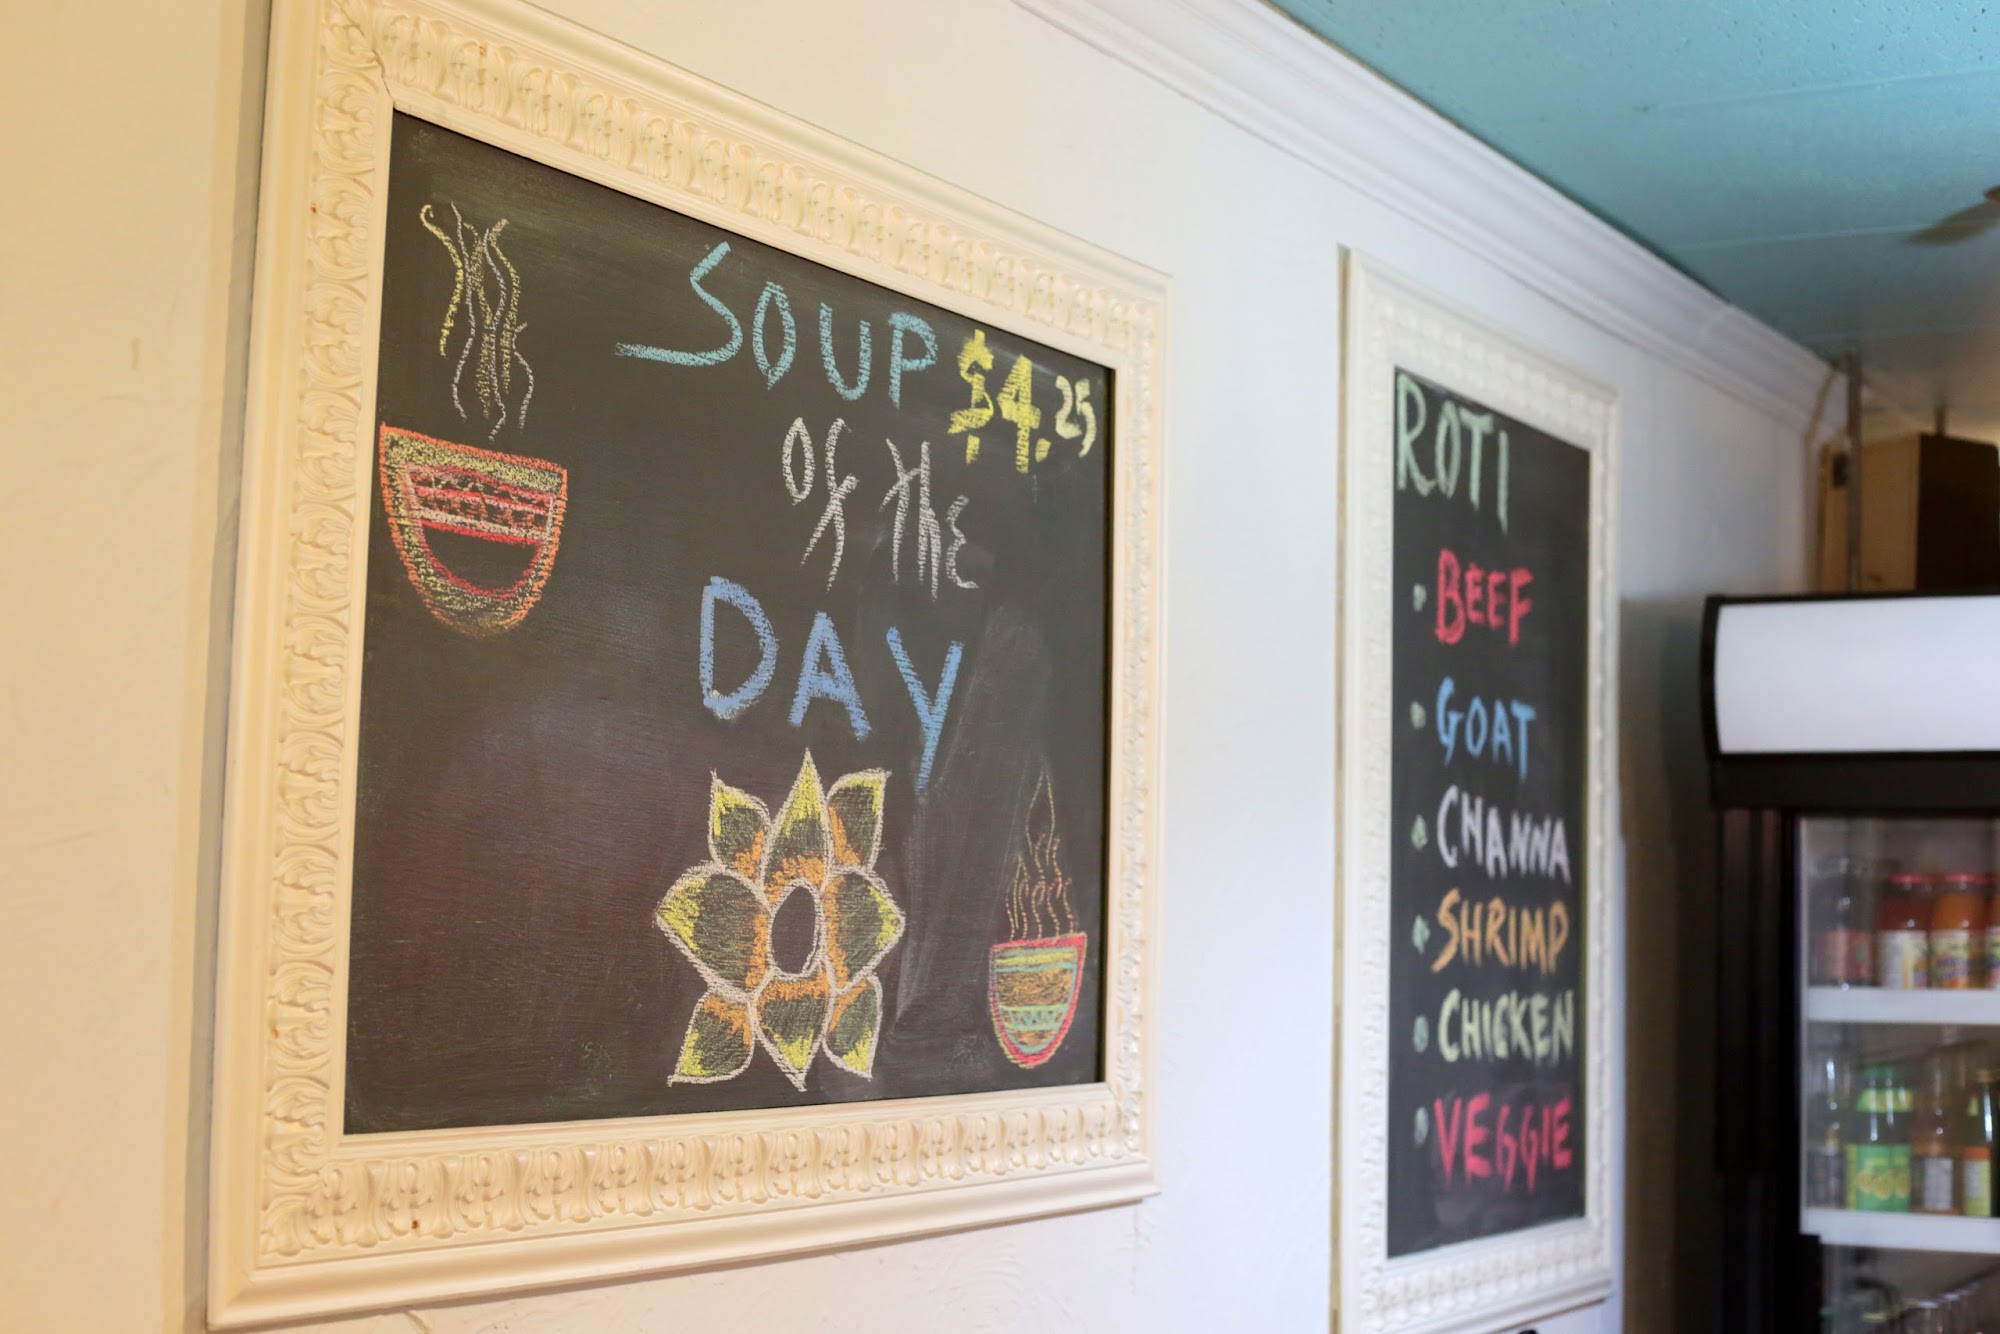 SOUP $4.25
of the
DAY
ROTI
• BEEF
• GOAT
• CHANNA
• SHRIMP
• CHICKEN
• VEGGIE